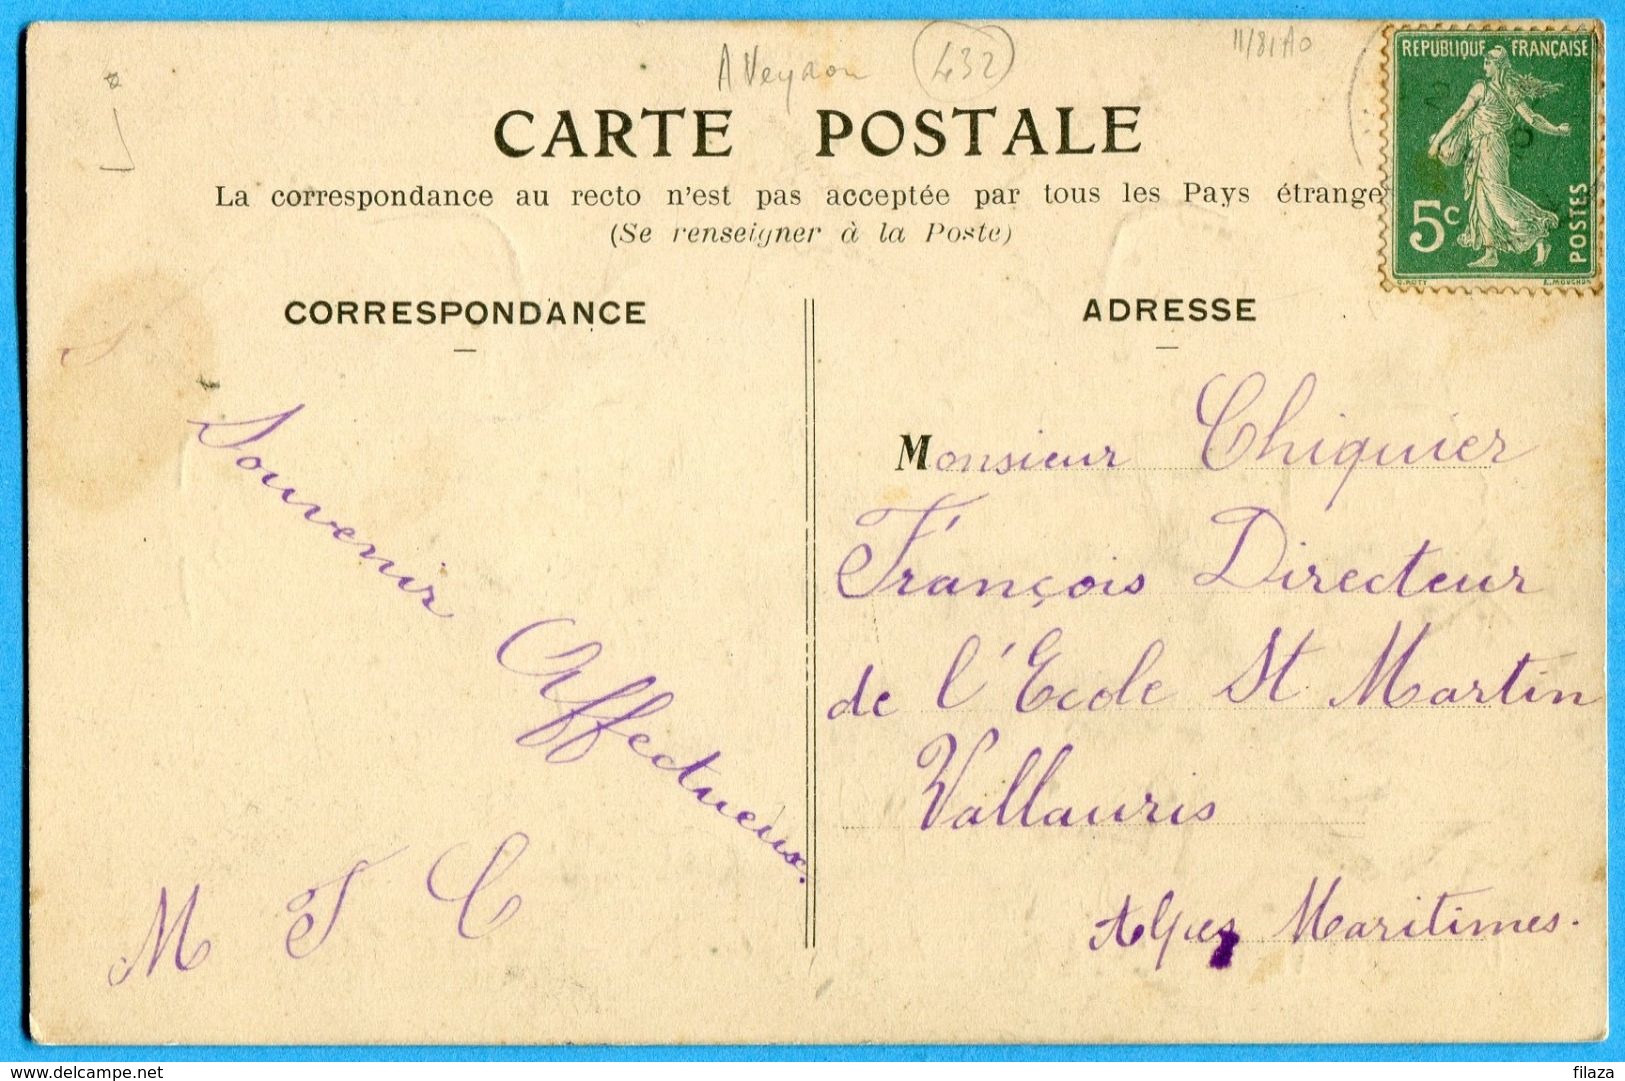 Aveyron 432 11/81AO
REPUBLIQUE FRANÇAISE
5c
POSTES
O.ROTY E.MOUCHON
CARTE POSTALE
La correspondance au recto n'est pas acceptée par tous les Pays étrange
(Se renseigner à la Poste)
CORRESPONDANCE
Souvenir Affectueux.
M J C
ADRESSE
Monsieur Chiquier
François Directeur
de l'Ecole St Martin
Vallauris
Alpes Maritimes.
www.delcampe.net
filaza